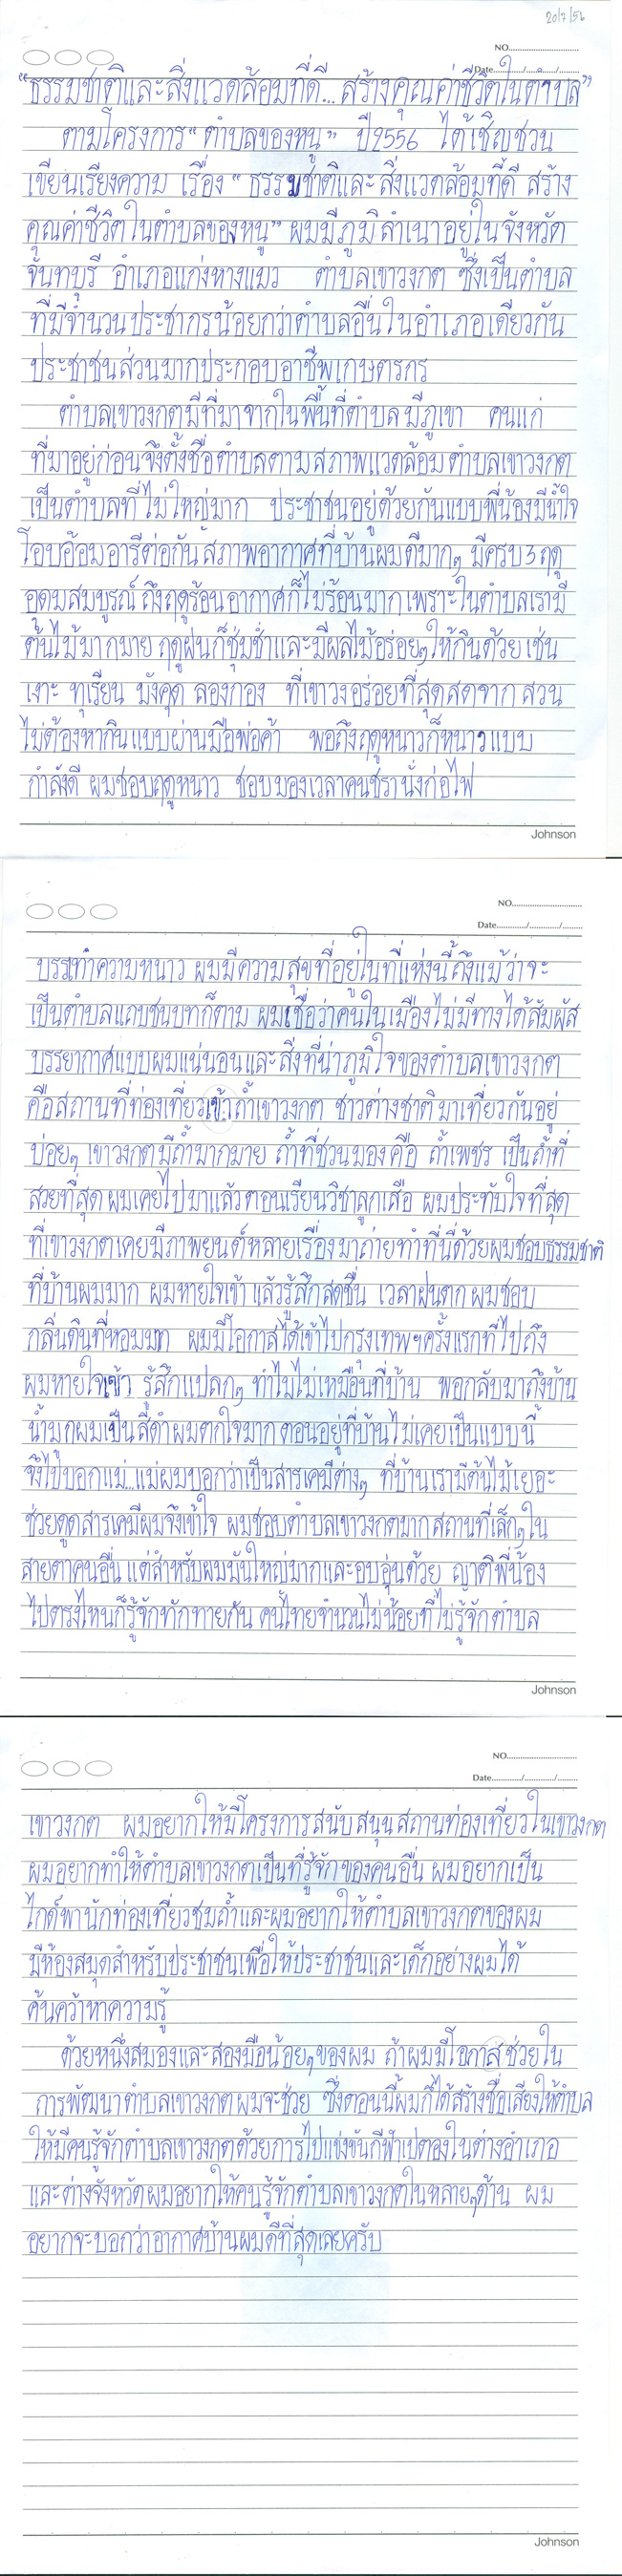 20/7/56
NO.
Date
"ธรรมชาติและสิ่งแวดล้อมที่ดี...สร้างคุณค่าชีวิตในตำบล"
ตามโครงการ "ตำบลของหนู" ปี2556 ได้เชิญชวน
เขียนเรียงความ เรื่อง "ธรรมชาติและสิ่งแวดล้อมที่ดี สร้าง
คุณค่าชีวิตในตำบลของหนู" ผมมีภูมิลำเนาอยู่ในจังหวัด
จันทบุรี อำเภอแก่งหางแมว ตำบลเขาวงกต ซึ่งเป็นตำบล
ที่มีจำนวนประชากรน้อยกว่าตำบลอื่นในอำเภอเดียวกัน
ประชาชนส่วนมากประกอบอาชีพเกษตรกร
ตำบลเขาวงกตมีที่มาจากในพื้นที่ตำบลมีภูเขา คนแก่
ที่มาอยู่ก่อนจึงตั้งชื่อตำบลตามสภาพแวดล้อม ตำบลเขาวงกต
เป็นตำบลที่ไม่ใหญ่มาก ประชาชนอยู่ด้วยกันแบบพี่น้องมีน้ำใจ
โอบอ้อมอารีต่อกัน สภาพอากาศที่บ้านผมดีมากๆ มีครบ3ฤดู
อุดมสมบูรณ์ ถึงฤดูร้อนอากาศก็ไม่ร้อนมาก เพราะในตำบลเรามี
ต้นไม้มากมาย ฤดูฝนก็ชุ่มช่ำและมีผลไม้อร่อยๆให้กินด้วย เช่น
เงาะ ทุเรียน มังคุด ลองกอง ที่เขาวงอร่อยที่สุดสดจากสวน
ไม่ต้องหากินแบบผ่านมือพ่อค้า พอถึงฤดูหนาวก็หนาวแบบ
กำลังดี ผมชอบฤดูหนาว ชอบมองเวลาคนชรานั่งก่อไฟ
Johnson
NO.
Date
บรรเทาความหนาว ผมมีความสุขที่อยู่ในที่แห่งนี้ถึงแม้ว่าจะ
เป็นตำบลแถบชนบทก็ตาม ผมเชื่อว่าคนในเมืองไม่มีทางได้สัมผัส
บรรยากาศแบบผมแน่นอนและสิ่งที่น่าภูมิใจของตำบลเขาวงกต
คือสถานที่ท่องเที่ยวเข้าถ้ำเขาวงกต ชาวต่างชาติมาเที่ยวกันอยู่
บ่อยๆ เขาวงกตมีถ้ำมากมาย ถ้ำที่ชวนมองคือ ถ้ำเพชร เป็นถ้ำที่
สวยที่สุด ผมเคยไปมาแล้วตอนเรียนวิชาลูกเสือ ผมประทับใจที่สุด
ที่เขาวงกตเคยมีภาพยนต์หลายเรื่องมาถ่ายทำที่นี่ด้วยผมชอบธรรมชาติ
ที่บ้านผมมาก ผมหายใจเข้า แล้วรู้สึกสดชื่น เวลาฝนตกผมชอบ
กลิ่นดินที่หอมมาก ผมมีโอกาสได้เข้าไปกรุงเทพฯครั้งแรกที่ไปถึง
ผมหายใจเข้า รู้สึกแปลกๆ ทำไมไม่เหมือนที่บ้าน พอกลับมาถึงบ้าน
น้ำมูกผมเป็นสีดำผมตกใจมาก ตอนอยู่ที่บ้านไม่เคยเป็นแบบนี้
จึงไปบอกแม่...แม่ผมบอกว่าเป็นสารเคมีต่างๆ ที่บ้านเรามีต้นไม้เยอะ
ช่วยดูดสารเคมีผมจึงเข้าใจ ผมชอบตำบลเขาวงกตมาก สถานที่เล็กๆใน
สายตาคนอื่น แต่สำหรับผมมันใหญ่มากและอบอุ่นด้วย ญาติพี่น้อง
ไปตรงไหนก็รู้จักทักทายกัน คนไทยจำนวนไม่น้อยที่ไม่รู้จักตำบล
Johnson
NO.
Date
เขาวงกต ผมอยากให้มีโครงการสนับสนุนสถานท่องเที่ยวในเขาวงกต
ผมอยากทำให้ตำบลเขาวงกตเป็นที่รู้จักของคนอื่น ผมอยากเป็น
ไกด์พานักท่องเที่ยวชมถ้ำและผมอยากให้ตำบลเขาวงกตของผม
มีห้องสมุดสำหรับประชาชนเพื่อให้ประชาชนและเด็กอย่างผมได้
ค้นคว้าหาความรู้
ด้วยหนึ่งสมองและสองมือน้อยๆของผม ถ้าผมมีโอกาสช่วยใน
การพัฒนาตำบลเขาวงกตผมจะช่วย ซึ่งตอนนี้ผมก็ได้สร้างชื่อเสียงให้ตำบล
ให้มีคนรู้จักตำบลเขาวงกตด้วยการไปแข่งขันกีฬาเปตองในต่างอำเภอ
และต่างจังหวัด ผมอยากให้คนรู้จักตำบลเขาวงกตในหลายๆด้าน ผม
อยากจะบอกว่าอากาศบ้านผมดีที่สุดเลยครับ
Johnson